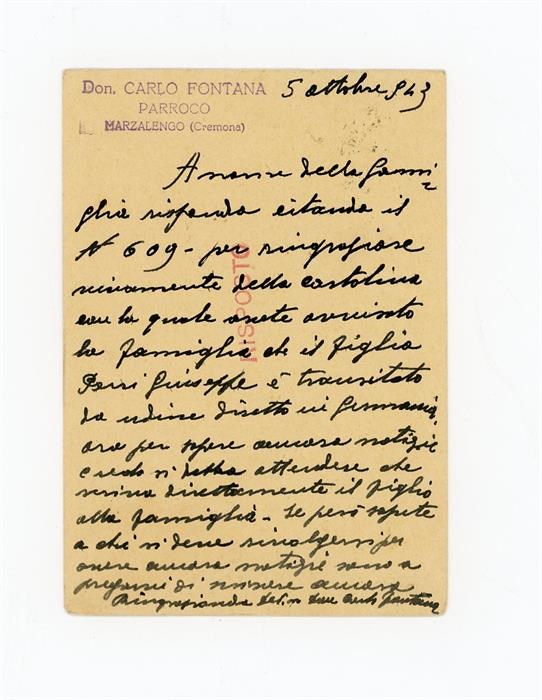 Don. CARLO FONTANA
PARROCO
MARZALENGO (Cremona)
5 ottobre 943
A nome della fami=
glia rispondo citando il
N 609 - per ringraziare
vivamente della cartolina
con la quale avete avvisato
la famiglia che il figlio
Giuseppe è transitato
da udine diretto in Germania,
ora per sapere ancora notizie
credo si debba attendere che
scriva direttamente il figlio
alla famiglia - Se però sapete
a chi si deve rivolgersi per
avere ancora notizie sono a
pregarvi di scrivere ancora
Ringraziando Don Carlo Fontana
RISPOSTO